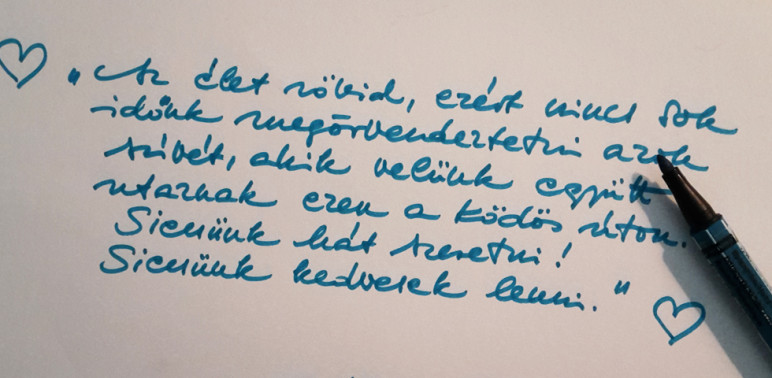 "Az élet rövid, ezért nincs sok
időnk megörvendeztetni azok
szívét, akik velünk együtt
utaznak ezen a ködös úton.
Siessünk hát szeretni!
Siessünk kedvesek lenni."